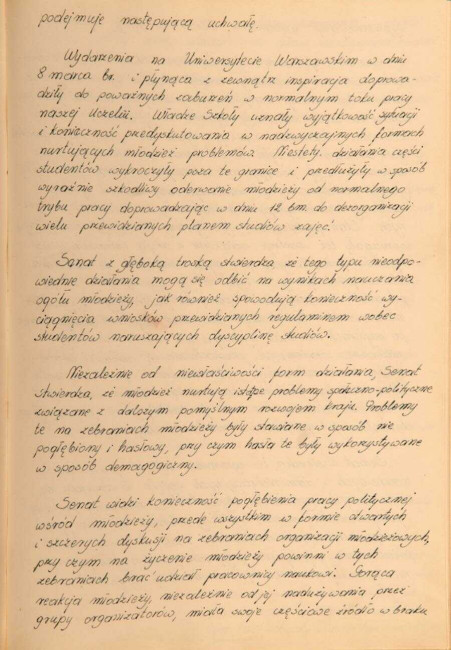 podejmuje następującą uchwałę.
Wydarzenia na Uniwersytecie Warszawskim w dniu
8 marca br. i płynąca z zewnątrz inspiracja doprowa-
dziły do poważnych zaburzeń w normalnym toku pracy
naszej Uczelni. Władze Szkoły uznały wyjątkowość sytuacji
i konieczność przedyskutowania w nadzwyczajnych formach
nurtujących młodzież problemów. Niestety, działania części
studentów wykroczyły poza te granice i przedłużyły w sposób
wyraźnie szkodliwy oderwanie młodzieży od normalnego
trybu pracy doprowadzając w dniu 12 bm. do dezorganizacji
wielu przewidzianych planem studiów zajęć.
Senat z głęboką troską stwierdza, że tego typu nieodpo-
wiednie działania mogą się odbić na wynikach nauczania
ogółu młodzieży, jak również spowodują konieczność wy-
ciągnięcia wniosków przewidzianych regulaminem wobec
studentów naruszających dyscyplinę studiów.
Niezależnie od niewłaściwości form działania, Senat
stwierdza, że młodzież nurtują istotne problemy społeczno-polityczne
związane z dalszym pomyślnym rozwojem kraju. Problemy
te na zebraniach młodzieży były stawiane w sposób nie
pogłębiony i hasłowy, przy czym hasła te były wykorzystywane
w sposób demagogiczny.
Senat widzi konieczność pogłębienia pracy politycznej
wśród młodzieży, przede wszystkim w formie otwartych
i szczerych dyskusji na zebraniach organizacji młodzieżowych,
przy czym na życzenie młodzieży powinni w tych
zebraniach brać udział pracownicy naukowi. Gorąca
reakcja młodzieży, niezależnie od jej nadużywania przez
grupy organizatorów, miała swoje częściowe źródło w braku